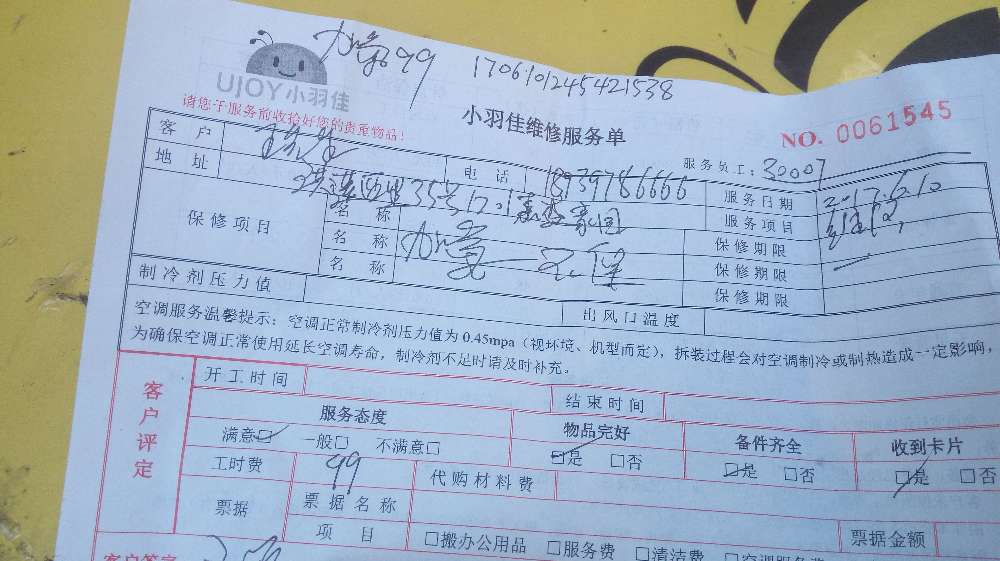 99 1706101245421538
UJOY小羽佳
请您于服务前收拾好您的贵重物品!
小羽佳维修服务单
NO. 0061545
服务员工:30007
客户 电话 18739786666 服务日期 2.17.6.10
地址 35号 服务项目
保修项目 名称 保修期限
名称 保修期限
名称 保修期限
制冷剂压力值 出风口温度
空调服务温馨提示:空调正常制冷剂压力值为0.45mpa(视环境、机型而定),拆装过程会对空调制冷或制热造成一定影响,
为确保空调正常使用延长空调寿命,制冷剂不足时请及时补充。
客户评定
开工时间 结束时间
服务态度 物品完好 备件齐全 收到卡片
满意☑ 一般□ 不满意□ ☑是 □否 ☑是 □否 ☑是 □否
工时费 99 代购材料费
票据 票据名称
项目 □搬办公用品 □服务费 □清洁费 □空调服务费 票据金额
客户签字